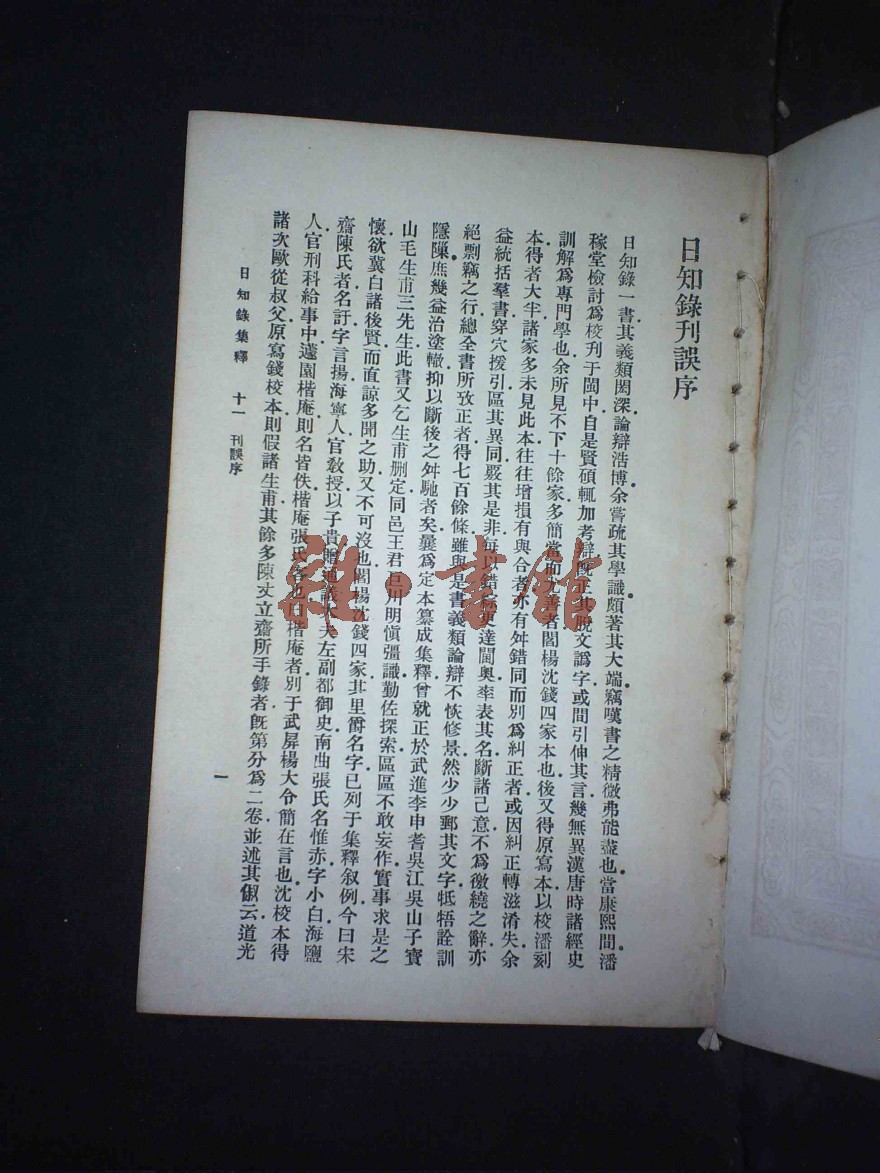 日知錄刊誤序
日知錄一書其義類閎深論辯浩博余嘗疏其學識頗著其大端竊嘆書之精微弗能盡也當康熙間潘
稼堂檢討爲校刋于閩中自是賢碩輒加考辯旣正其脫文譌字或間引伸其言幾無異漢唐時諸經史
訓解爲專門學也余所見不下十餘家多簡當而善者閻楊沈錢四家本也後又得原寫本以校潘刻
本得者大半諸家多未見此本往往增損有與合者亦有舛錯同而別爲糾正者或因糾正轉滋淆失余
益統括羣書穿穴援引區其異同覈其是非每以錯更達閫奧率表其名斷諸己意不爲徼繞之辭亦
絕剽竊之行總全書所攷正者得七百餘條雖與是書義類論辯不恢修景然少少郵其文字牴牾詮訓
隱隟庶幾益治塗轍抑以斷後之舛馳者矣曩爲定本纂成集釋曾就正於武進李申耆吳江吳山子寶
山毛生甫三先生此書又乞生甫刪定同邑王君巨川明愼彊識勤佐探索區區不敢妄作實事求是之
懷欲冀白諸後賢而直諒多聞之助又不可沒也閻楊沈錢四家其里爵名字已列于集釋叙例今曰宋
齋陳氏者名訏字言揚海寧人官敎授以子貴贈通議大夫左副都御史南曲張氏名惟赤字小白海鹽
人官刑科給事中蘧園楷庵則名皆佚楷庵張氏客也曰楷庵者別于武屏楊大令簡在言也沈校本得
諸次歐從叔父原寫錢校本則假諸生甫其餘多陳丈立齋所手錄者旣第分爲二卷並述其俶云道光
日知錄集釋 十一 刊誤序
一
雜·書館